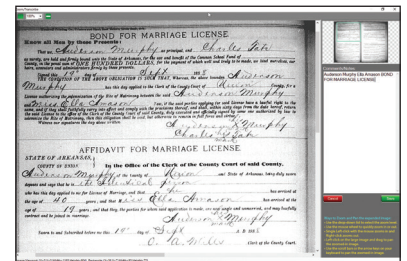 Items/Transcribe
100%
BOND FOR MARRIAGE LICENSE
Know all Men by these Presents:
That we, Anderson Murphy as principal, and Charles Tate
as surety, are held and firmly bound unto the State of Arkansas, for the use and benefit of the Common School Fund of
County, in the penal sum of ONE HUNDRED DOLLARS, for the payment of which well and truly to be made, we bind ourselves, our
heirs, executors and administrators firmly by these presents.
Signed this 19th day of Sept 1885
THE CONDITION OF THE ABOVE OBLIGATION IS SUCH THAT, Whereas, the above bounden Anderson
Murphy has this day applied to the Clerk of the County Court of Union County for a
License authorizing the solemnization of the Rite of Matrimony between the said Anderson Murphy
and Miss Ella Amason Now, if the said parties applying for said License have a lawful right to the
same, and if they shall faithfully carry into effect and comply with the provisions thereof; and shall, within sixty days from the date hereof, return
the said License to the office of the Clerk of said County, duly executed and officially signed by some one authorized by law to
solemnize the Rite of Matrimony, then this obligation shall be void, but otherwise to remain in full force and virtue.
Witness our signatures the day above written.
Anderson X Murphy
Charles X Tate
AFFIDAVIT FOR MARRIAGE LICENSE
STATE OF ARKANSAS,
COUNTY OF UNION. In the Office of the Clerk of the County Court of said County.
Anderson Murphy of the County of Union and State of Arkansas, being duly sworn
deposes and says that he is the identical person
who has this day applied to me for License of Marriage, and that he has arrived at
the age of 40 years, and that Miss Ella Amason has arrived at
the age of 19 years, and that they, the parties for whom said application is made, are single and unmarried, and may lawfully
contract and be joined in marriage.
Anderson X Murphy
Sworn to and Subscribed before me this 19th day of Sept A. D. 188
C. A. Miles Clerk of the County Court.
Comments/Notes
Anderson Murphy Ella Amason BOND
FOR MARRIAGE LICENSE
Cancel
Save